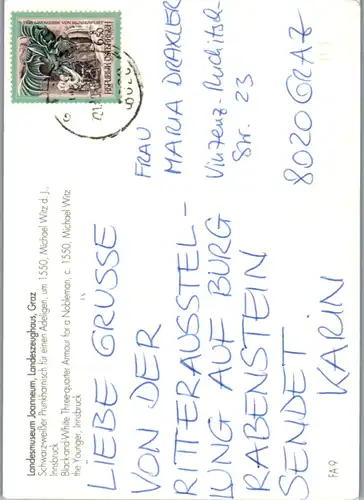 Landesmuseum Joanneum, Landeszeughaus, Graz
Schwarzweißer Prunkharnisch für einen Adeligen, um 1550, Michael Witz d. J.,
Innsbruck
Black-and-White Three-quarter Armour for a Nobleman, c. 1550, Michael Witz
the Younger, Innsbruck
LIEBE GRÜSSE
VON DER
RITTERAUSSTEL-
LUNG AUF BURG
RABENSTEIN
SENDET
KARIN
FRAU
MARIA DRAXLER
Vinzenz-Muchitsch-
Str. 23
8020 GRAZ
REPUBLIK ÖSTERREICH
FA 9